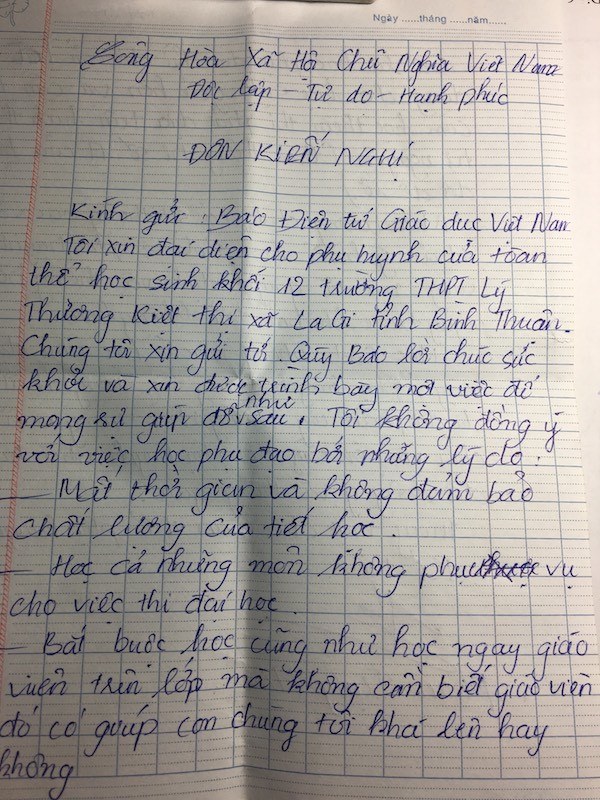 Ngày ......tháng ......năm......
Cộng Hòa Xã Hội Chủ Nghĩa Việt Nam
Độc lập - Tự do - Hạnh phúc
ĐƠN KIẾN NGHỊ
Kính gửi : Báo Điện tử Giáo dục Việt Nam
Tôi xin đại diện cho phụ huynh của toàn
thể học sinh khối 12 trường THPT Lý
Thường Kiệt thị xã La Gi tỉnh Bình Thuận.
Chúng tôi xin gửi tới Qúy Báo lời chúc sức
khỏe và xin được trình bày một việc để
mong sự giúp đỡ như sau. Tôi không đồng ý
với việc học phụ đạo bởi những lý do :
- Mất thời gian và không đảm bảo
chất lượng của tiết học.
- Học cả những môn không phục vụ
cho việc thi đại học.
- Bắt buộc học cũng như học ngay giáo
viên trên lớp mà không cần biết giáo viên
đó có giúp con chúng tôi khá lên hay
không